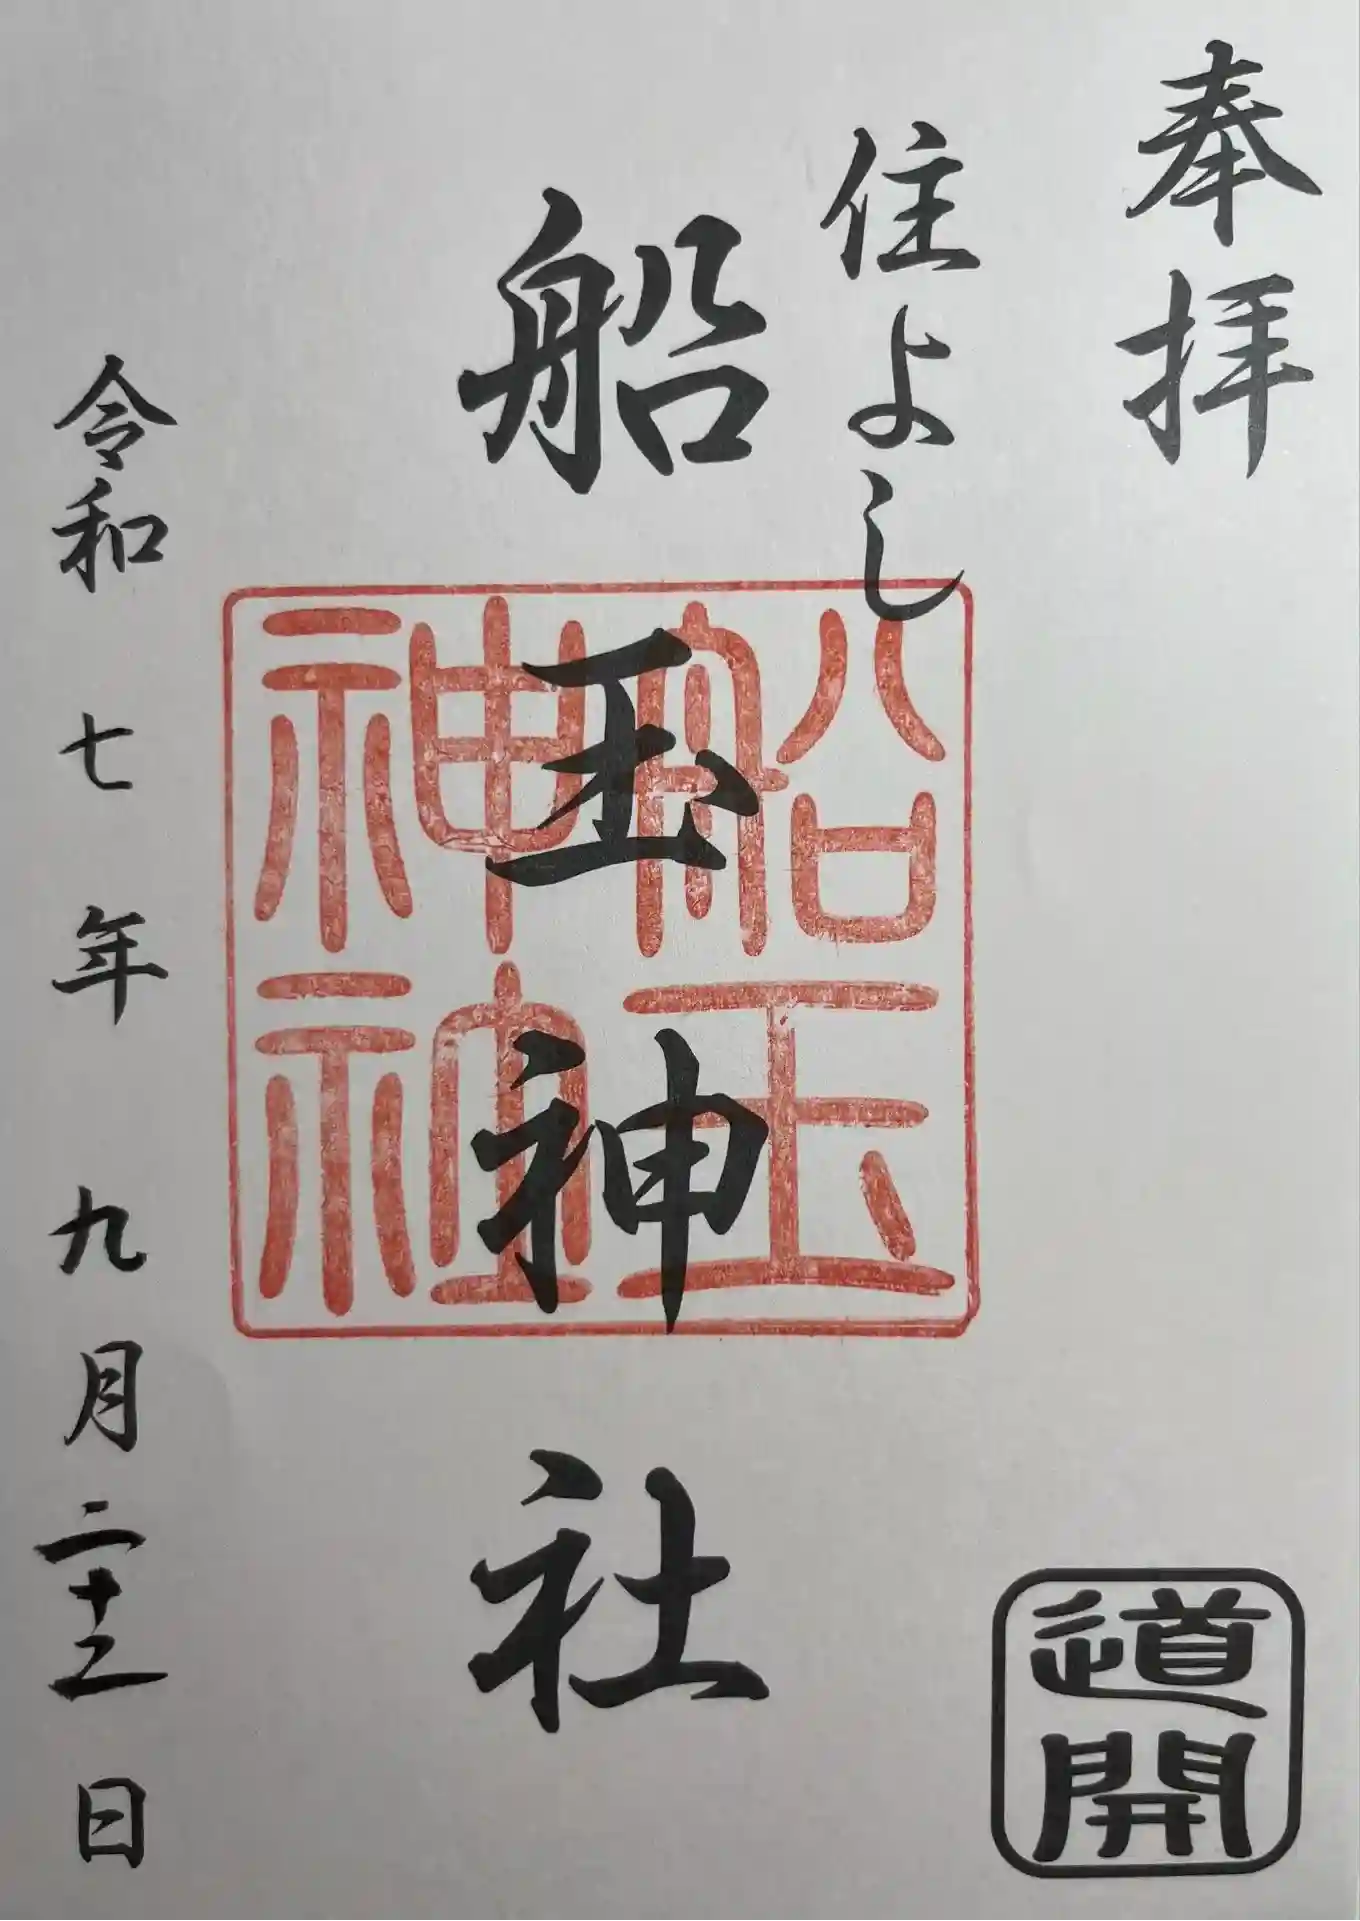 奉拝
住よし
船玉神社
船玉
神社
道開
令和七年九月二十二日